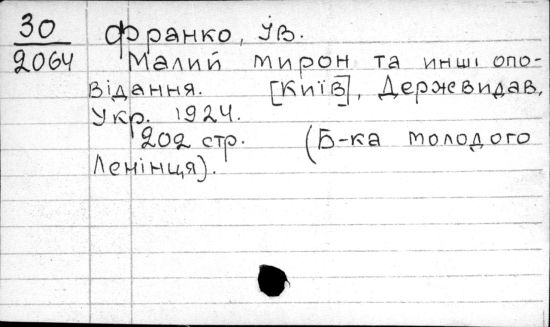 30 Франко, Ів.
2064 Малий Мирон та инші опо-
відання. [Київ], Держвидав,
Укр. 1924.
202 стр. (Б-ка молодого
Ленінця).